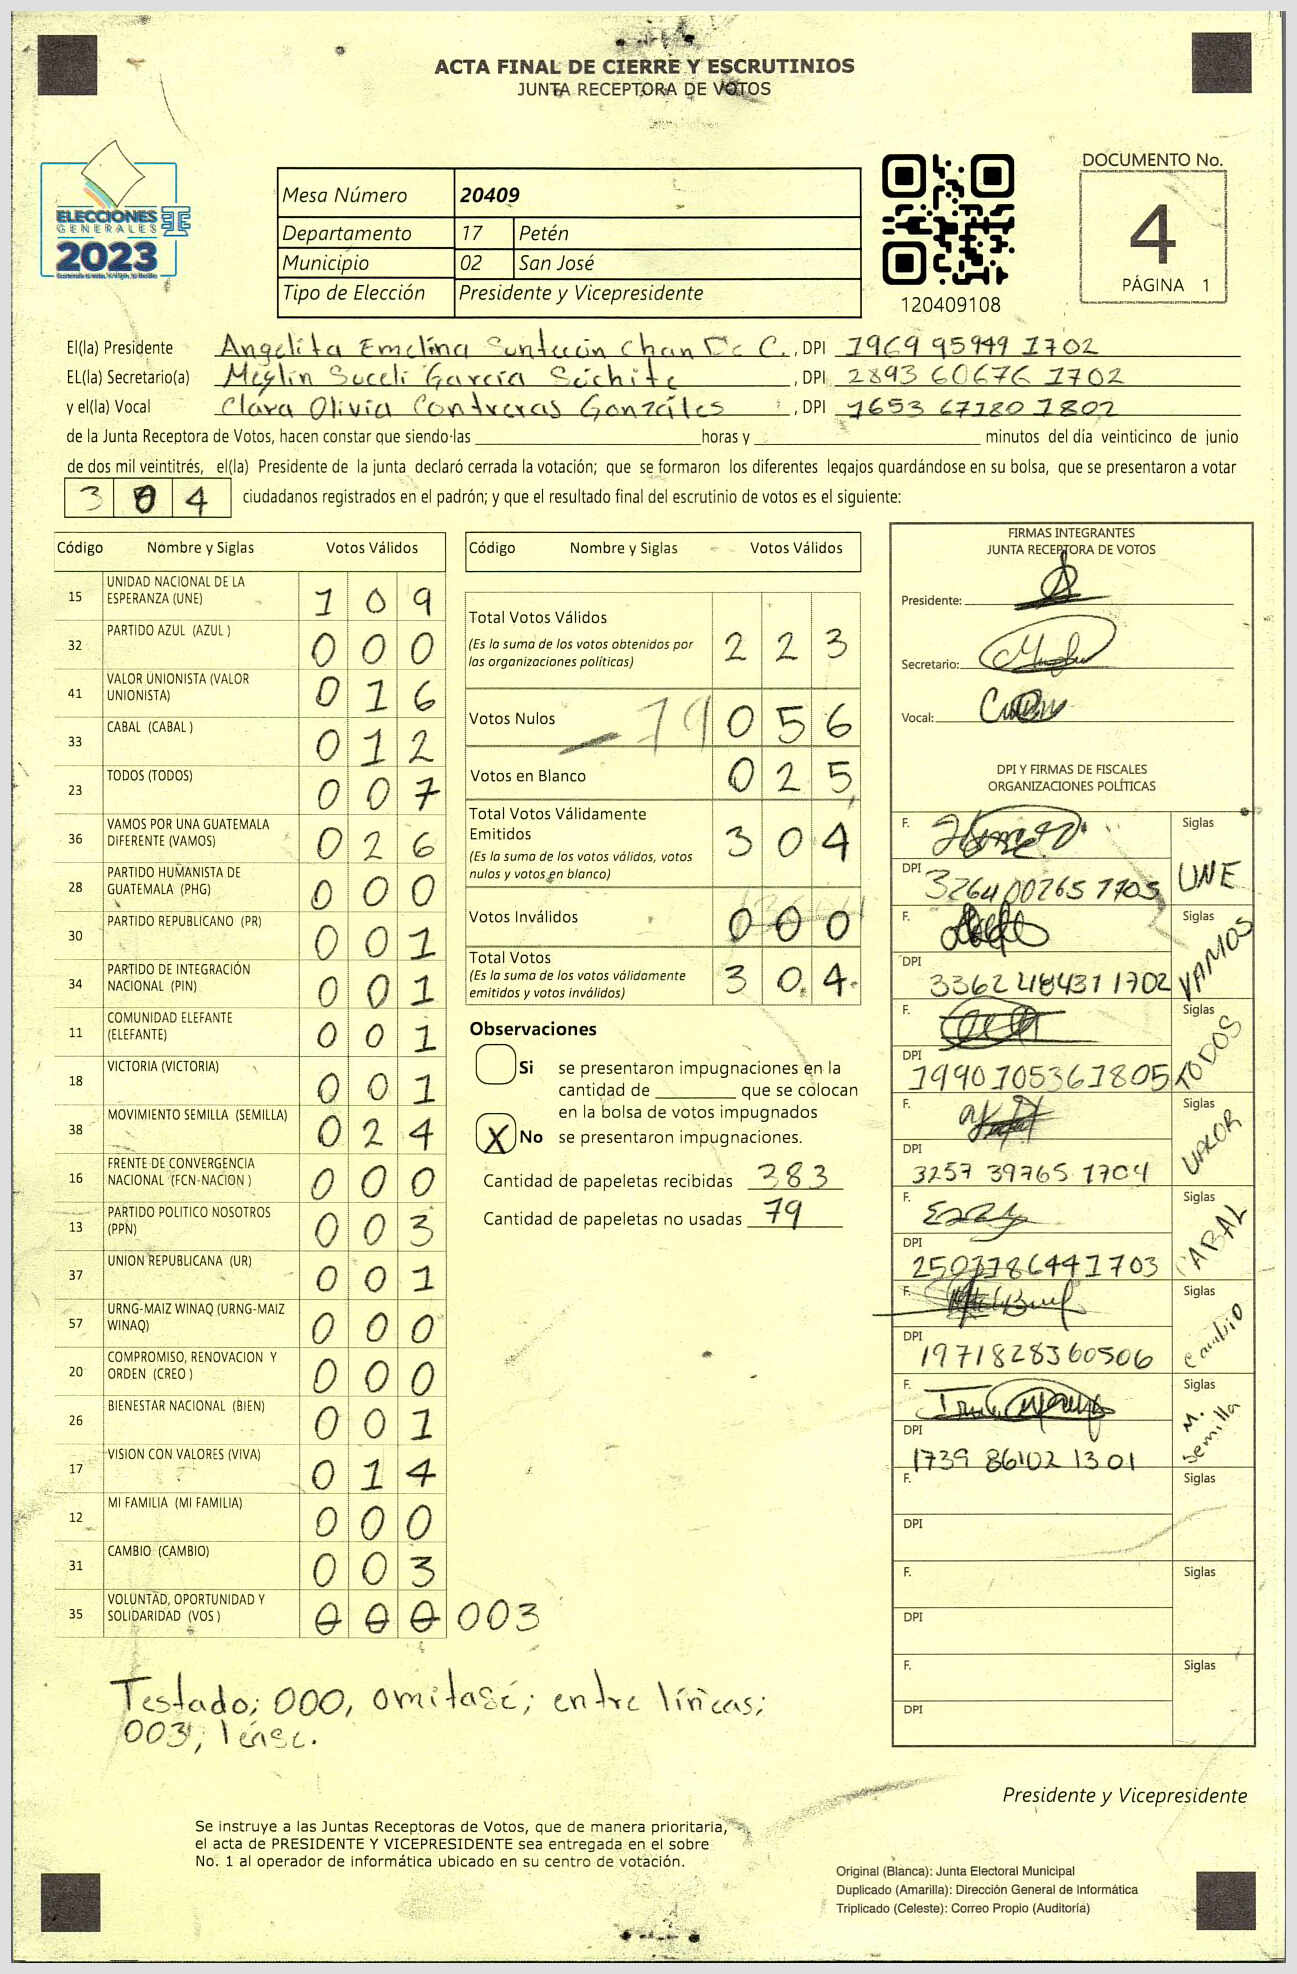 ACTA FINAL DE CIERRE Y ESCRUTINIOS
JUNTA RECEPTORA DE VOTOS
ELECCIONES
GENERALES
2023
Mesa Número 20409
Departamento 17 Petén
Municipio 02 San José
Tipo de Elección Presidente y Vicepresidente
120409108
DOCUMENTO No.
4
PÁGINA 1
El(la) Presidente Angelita Emelina Suntecún Chan De C. , DPI 1969 95949 1702
EL(la) Secretario(a) Meylin Suceli García Súchite , DPI 2893 60676 1702
y el(la) Vocal Clara Olivia Contreras Gonzáles , DPI 1653 67180 1802
de la Junta Receptora de Votos, hacen constar que siendo las horas y minutos del día veinticinco de junio
de dos mil veintitrés, el(la) Presidente de la junta declaró cerrada la votación; que se formaron los diferentes legajos quardándose en su bolsa, que se presentaron a votar
304 ciudadanos registrados en el padrón; y que el resultado final del escrutinio de votos es el siguiente:
Código Nombre y Siglas Votos Válidos
15 UNIDAD NACIONAL DE LA ESPERANZA (UNE) 109
32 PARTIDO AZUL (AZUL ) 000
41 VALOR UNIONISTA (VALOR UNIONISTA) 016
33 CABAL (CABAL ) 012
23 TODOS (TODOS) 007
36 VAMOS POR UNA GUATEMALA DIFERENTE (VAMOS) 026
28 PARTIDO HUMANISTA DE GUATEMALA (PHG) 000
30 PARTIDO REPUBLICANO (PR) 001
34 PARTIDO DE INTEGRACIÓN NACIONAL (PIN) 001
11 COMUNIDAD ELEFANTE (ELEFANTE) 001
18 VICTORIA (VICTORIA) 001
38 MOVIMIENTO SEMILLA (SEMILLA) 024
16 FRENTE DE CONVERGENCIA NACIONAL (FCN-NACION ) 000
13 PARTIDO POLITICO NOSOTROS (PPN) 003
37 UNION REPUBLICANA (UR) 001
57 URNG-MAIZ WINAQ (URNG-MAIZ WINAQ) 000
20 COMPROMISO, RENOVACION Y ORDEN (CREO ) 000
26 BIENESTAR NACIONAL (BIEN) 001
17 VISION CON VALORES (VIVA) 014
12 MI FAMILIA (MI FAMILIA) 000
31 CAMBIO (CAMBIO) 003
35 VOLUNTAD, OPORTUNIDAD Y SOLIDARIDAD (VOS ) 000 003
Testado; 000, omitase; entre líneas;
003, léase.
Código Nombre y Siglas Votos Válidos
Total Votos Válidos 223
(Es la suma de los votos obtenidos por
las organizaciones políticas)
Votos Nulos 79 056
Votos en Blanco 025
Total Votos Válidamente
Emitidos 304
(Es la suma de los votos válidos, votos
nulos y votos en blanco)
Votos Inválidos 000
Total Votos 304
(Es la suma de los votos válidamente
emitidos y votos inválidos)
Observaciones
Si se presentaron impugnaciones en la
cantidad de que se colocan
en la bolsa de votos impugnados
X No se presentaron impugnaciones.
Cantidad de papeletas recibidas 383
Cantidad de papeletas no usadas 79
FIRMAS INTEGRANTES
JUNTA RECEPTORA DE VOTOS
Presidente:
Secretario:
Vocal:
DPI Y FIRMAS DE FISCALES
ORGANIZACIONES POLÍTICAS
F. Siglas
DPI 3264 00265 1705 UNE
F. Siglas
DPI 3362 418431 1702 VAMOS
F. Siglas
DPI 1990705361805 TODOS
F. Siglas
DPI 3257 39765 1704 VALOR
F. Siglas
DPI 2503786441703 CABAL
F. Siglas
DPI 1971828360506 Cambio
F. Siglas
DPI 1739 86102 1301 M. Semilla
F. Siglas
DPI
F. Siglas
DPI
F. Siglas
DPI
Presidente y Vicepresidente
Se instruye a las Juntas Receptoras de Votos, que de manera prioritaria,
el acta de PRESIDENTE Y VICEPRESIDENTE sea entregada en el sobre
No. 1 al operador de informática ubicado en su centro de votación.
Original (Blanca): Junta Electoral Municipal
Duplicado (Amarilla): Dirección General de Informática
Triplicado (Celeste): Correo Propio (Auditoría)